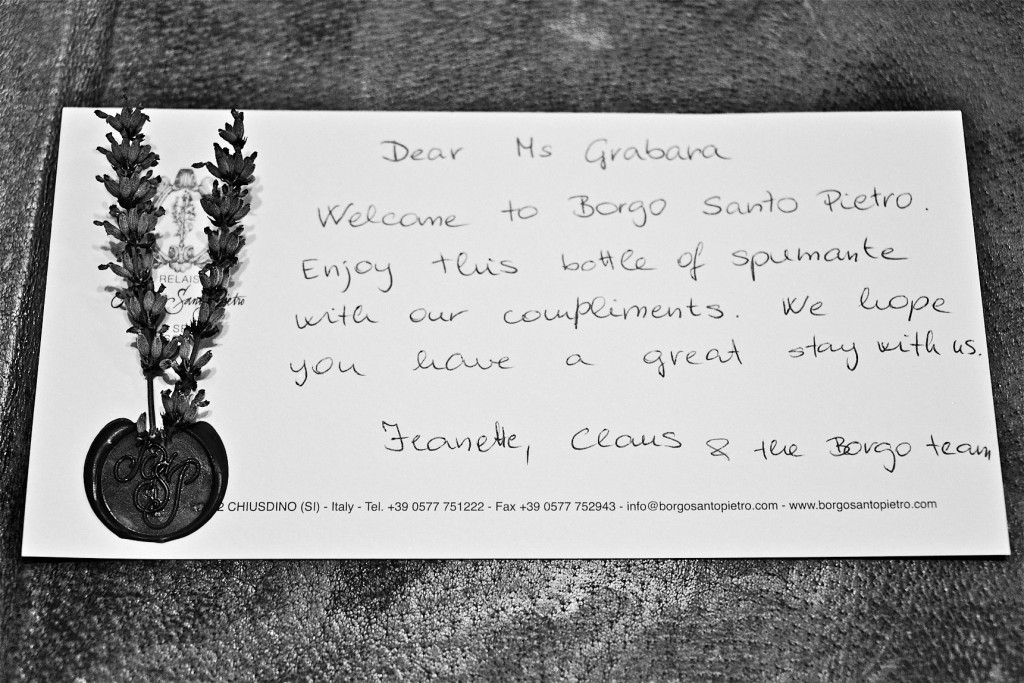 Dear Ms Grabara
Welcome to Borgo Santo Pietro.
Enjoy this bottle of spumante
with our compliments. We hope
you have a great stay with us.
Jeanette, Claus & the Borgo team
RELAIS
Santo Pietro
CHIUSDINO (SI) - Italy - Tel. +39 0577 751222 - Fax +39 0577 752943 - info@borgosantopietro.com - www.borgosantopietro.com